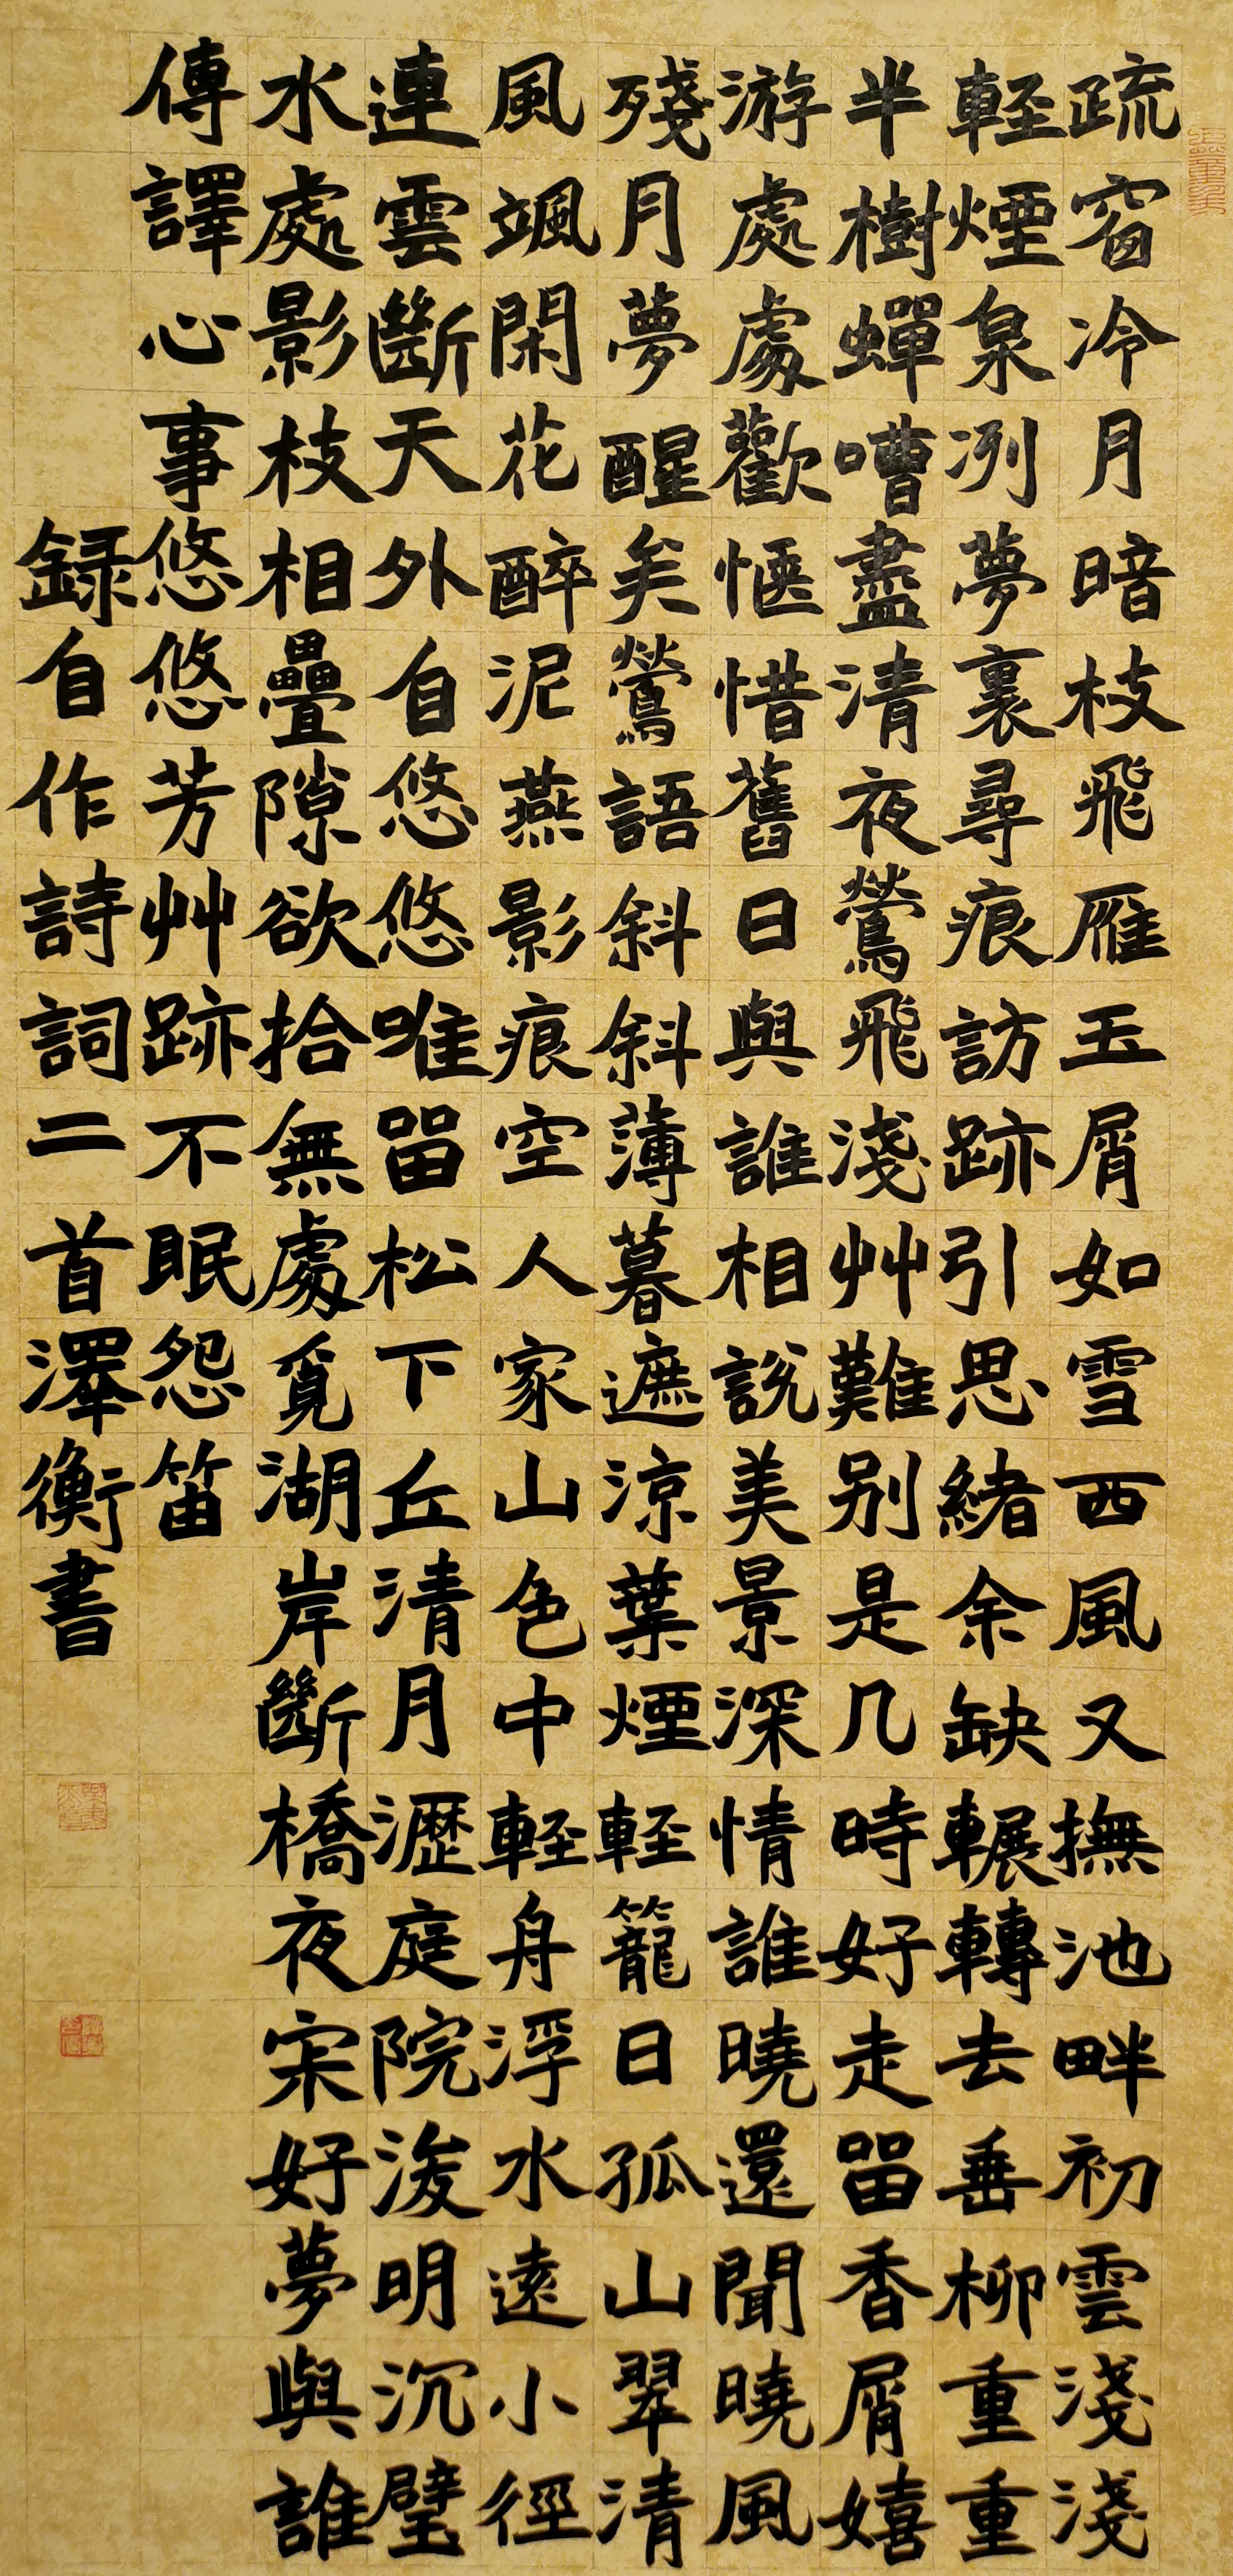 疏窗冷月暗枝飛雁玉屑如雪西風又撫池畔初雲淺淺
輕煙泉冽夢裏尋痕訪跡引思緒余缺輾轉去垂柳重重
半樹蟬嘈盡清夜鶯飛淺艸難别是几時好走留香屑嬉
游處處歡愜惜舊日與誰相說美景深情誰曉還聞曉風
殘月夢醒矣鶯語斜斜薄暮遮涼葉煙輕籠日孤山翠清
風颯閑花醉泥燕影痕空人家山色中輕舟浮水遠小徑
連雲斷天外自悠悠唯留松下丘清月瀝庭院淺明沉璧
水處影枝相疊隙欲拾無處覓湖岸斷橋夜宋好夢與誰
傳譯心事悠悠芳艸跡不眠怨笛
録自作詩詞二首澤衡書